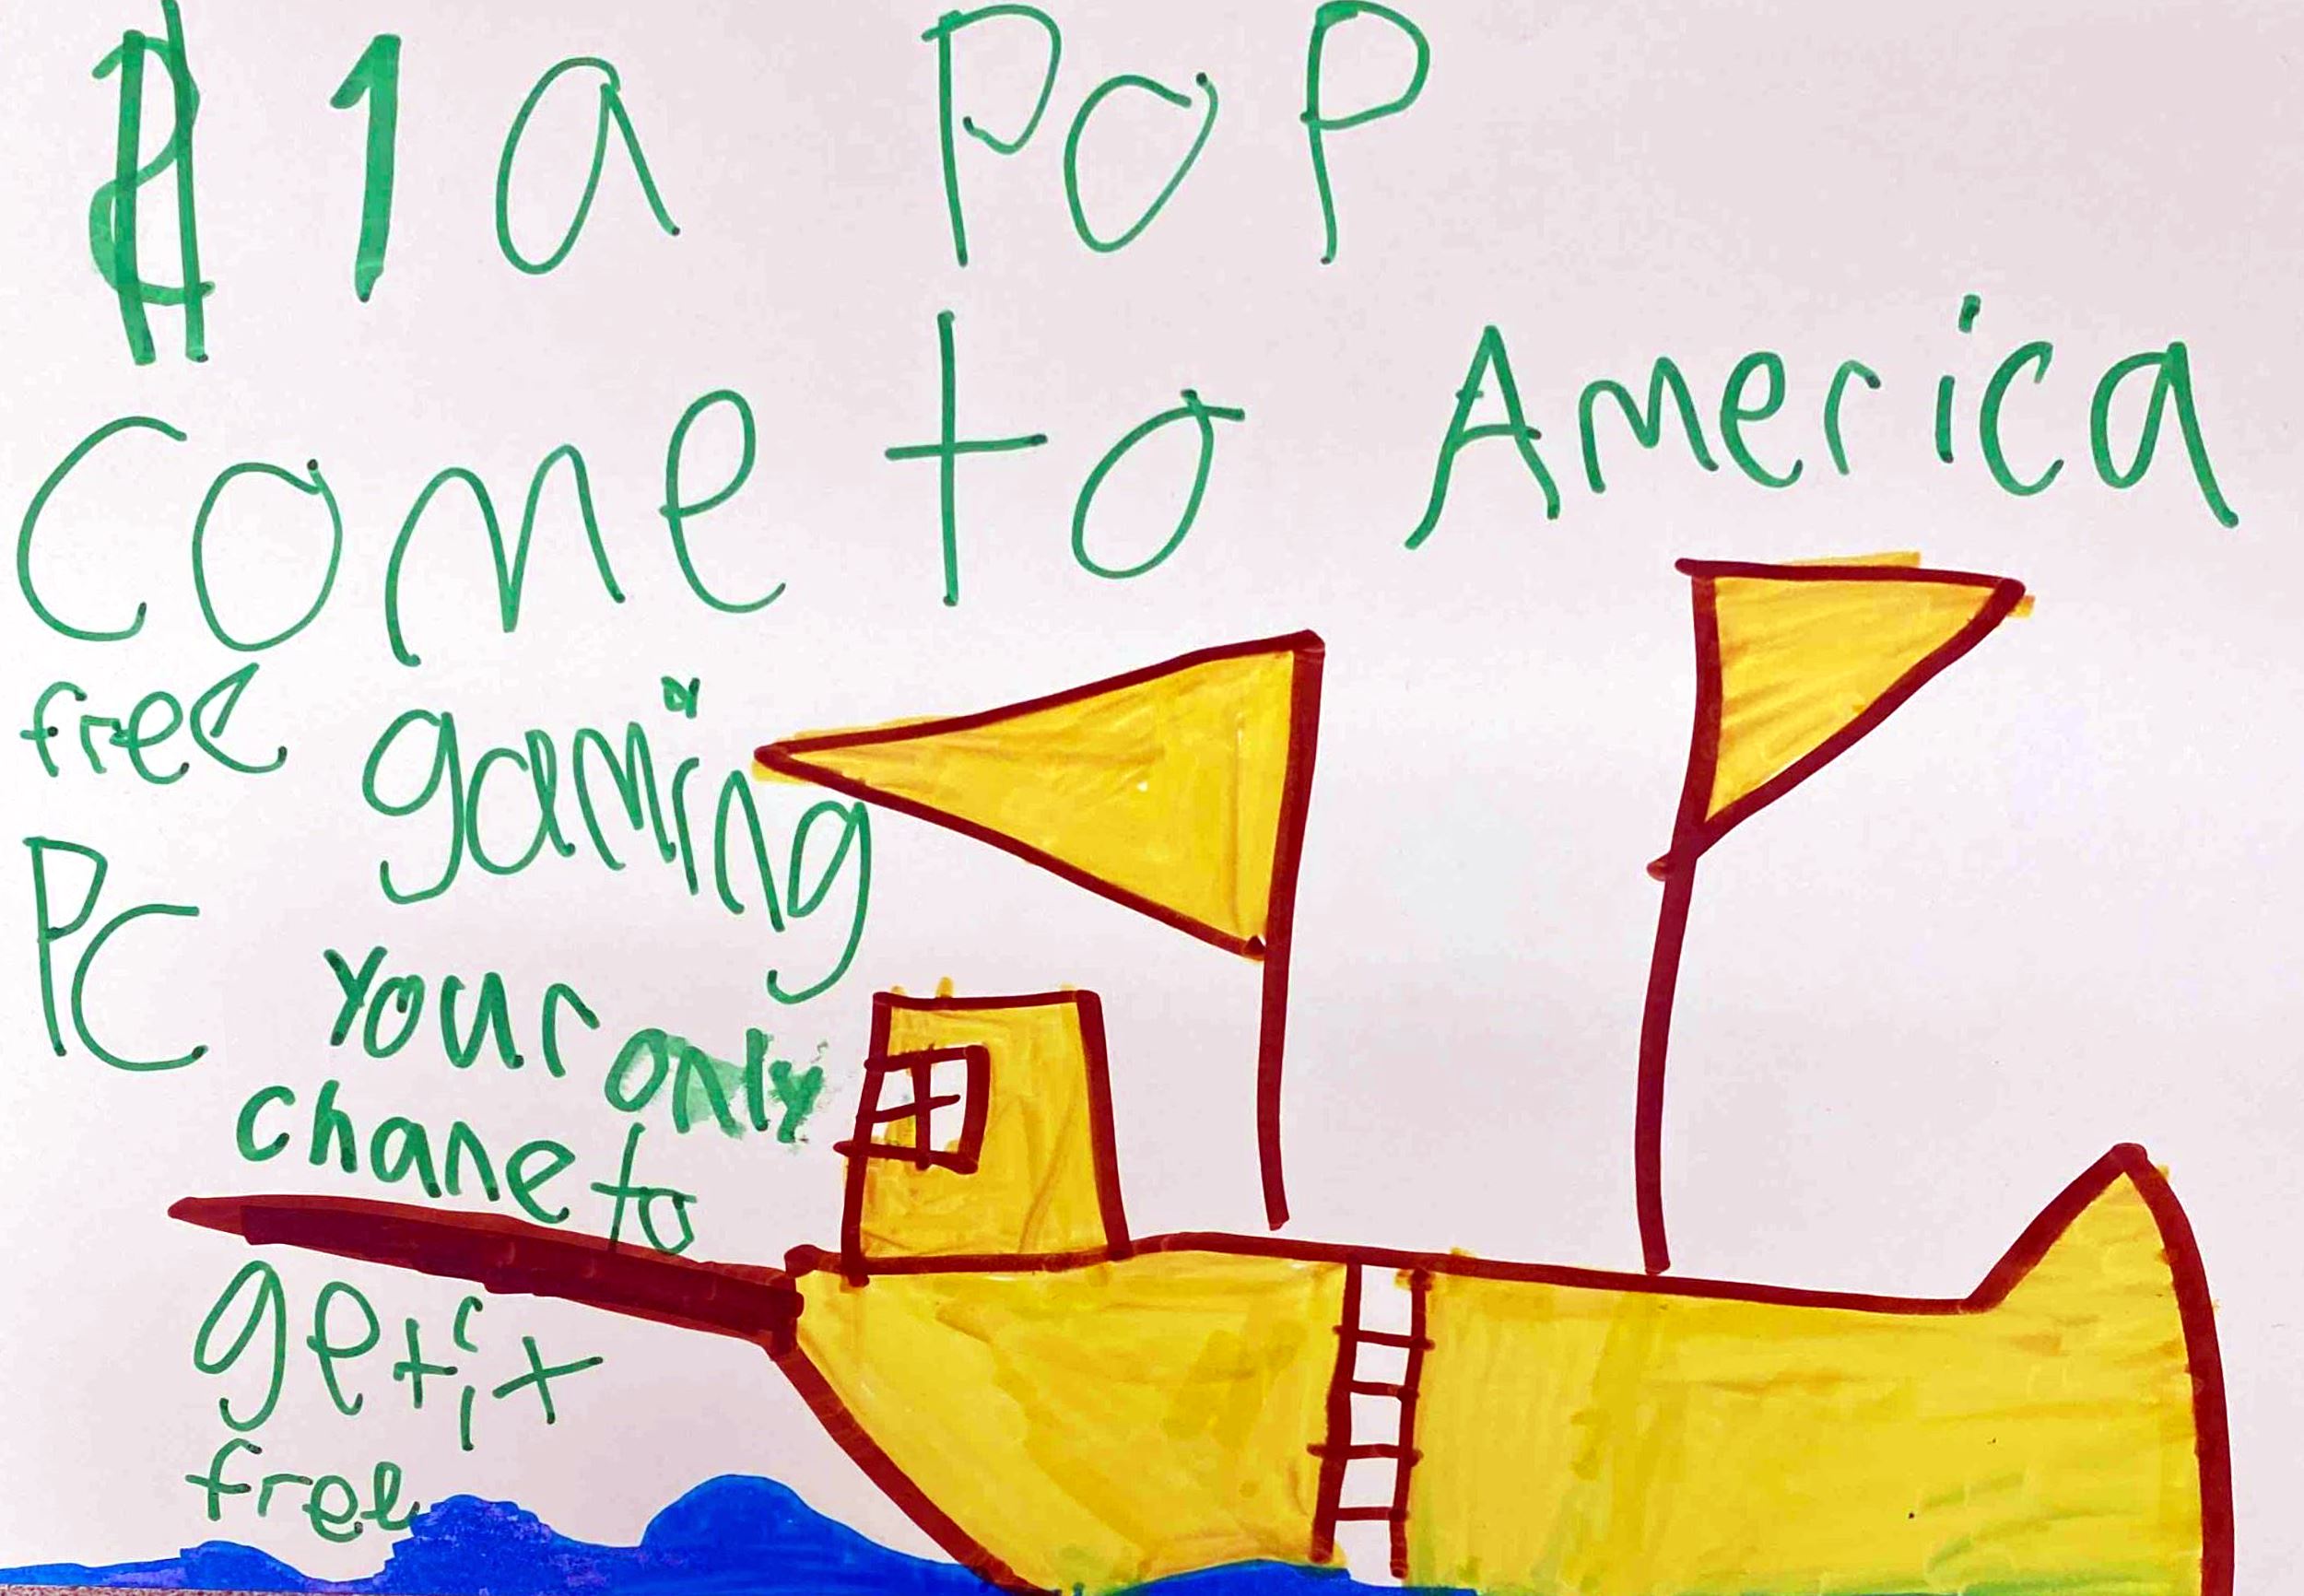 $1 a PoP
Come to America
free gaming
PC your only
chane to
get it
free